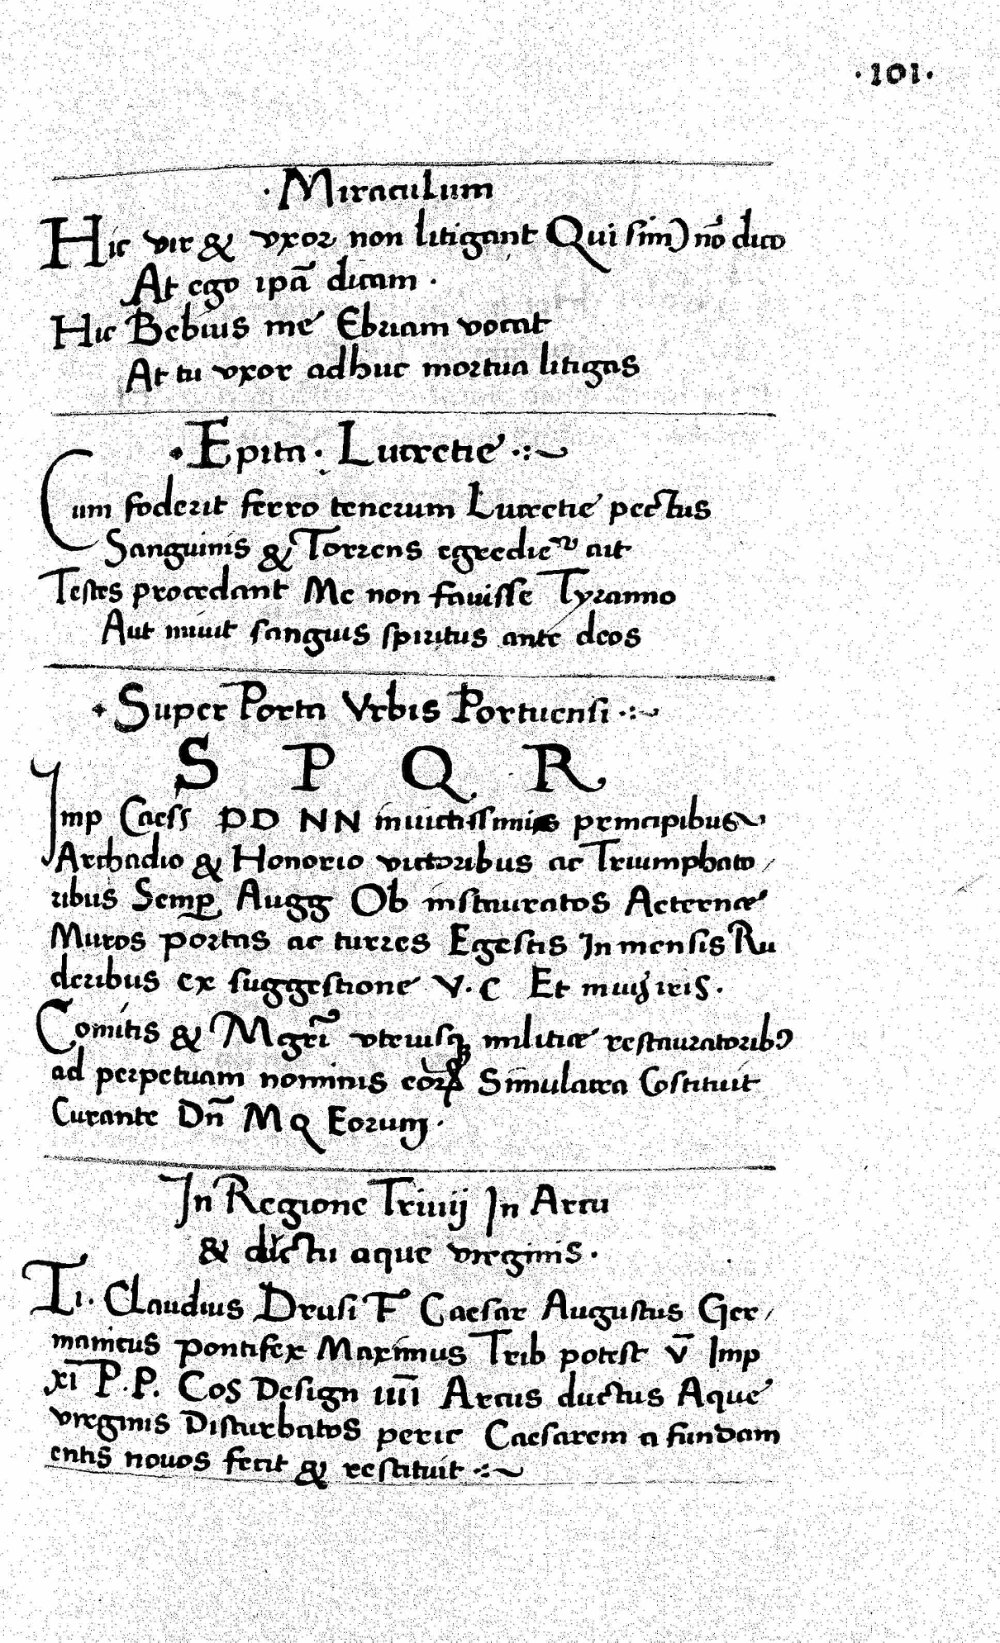 ·101·
·Miraculum
Hic vir & vxor non litigant Qui sim) nō dico
At ego ipā dicam ·
Hic Bebius me Ebriam vocat
At tu vxor adhuc mortua litigas
·Epita· Lucretie·:~
Cum foderit ferro tenerum Lucretie pectus
Sanguinis & Torrens egredieᵗʳ ait
Testes procedant Me non fauisse Tyranno
Aut miuit sanguis spiritus ante deos
·Super Porta Vrbis Portuensi·:~
S P Q R
Imp Caess DD NN inuictissimis principibus
Archadio & Honorio victoribus ac Triumphato/
ribus Semꝑ Augg Ob instauratos Aeternæ
Muros portas ac turres Egestis In mensis Ru
deribus ex suggestione V·C Et
Comitis & Mgrī vtriusꝗ militiæ restauratoribꝰ
ad perpetuam nominis eoꝝ Simulacra Costituit
Curante Dn̄ M Q Eorum·
In Regione Triuij In Arcu
& dùctu aque virginis·
Ti· Claudius Drusi F Caesar Augustus Ger/
manicus pontifex Maximus Trib potest V̄ Imp
xī P.P. Cos Design īīīī Arcus ductus Aque
virginis Disturbatos peric Caesarem a fundam
entis nouos fecit & restituit·:~